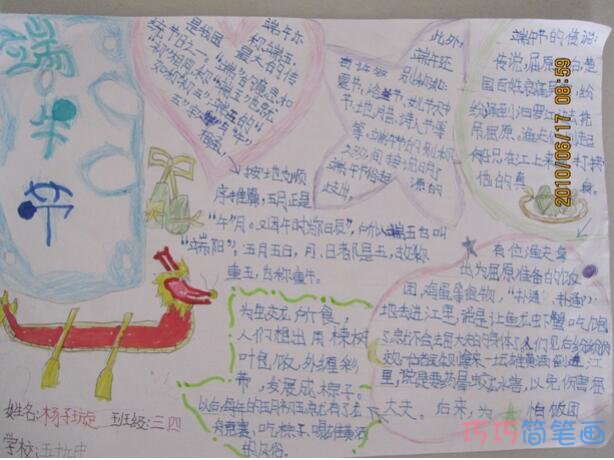 端午节
端午亦
称端五,
是我国
最大的传
统节日之一。"端"的意思和
"初"相同,
相通。
此外,
端午还
有许多
别称如:
夏节、浴兰节、女儿节、天中
节、地腊、诗人节等
等。端午节的别称
之多,间接说明了
端午节俗起
源的
歧出
端午节的传说:
传说,屈原
国百姓哀痛
纷涌到汨罗
吊屈原。渔夫们
船只在江上来
他的真身。
2010/06/17 08:59
按地支顺
序推算,五月正是
"午"月。又因午时为"阳辰",
端五也叫
"端阳"。五月五日,月、日都是五,故称
重五,也称重午。
有位渔夫拿
出为屈原准备的饭
团、鸡蛋等食物,"扑通、扑通"
地丢进江里,说是让鱼龙虾蟹吃饱
了,就不会去咬屈大夫的身体了。人们见后纷纷仿
效。一位老医师拿来一坛雄黄酒倒进江
里,说是要药晕蛟龙水兽,以免伤害屈
大夫。后来,为怕饭团
为蛟龙所食,
人们想出用楝树
叶包饭,外缠彩
带,发展成粽子。
以后,在每年的五月初五,就有了龙
舟竞赛、吃粽子、喝雄黄酒
的风俗。
姓名:杨子璇 班级:三四
学校:五十九中
巧巧简笔画